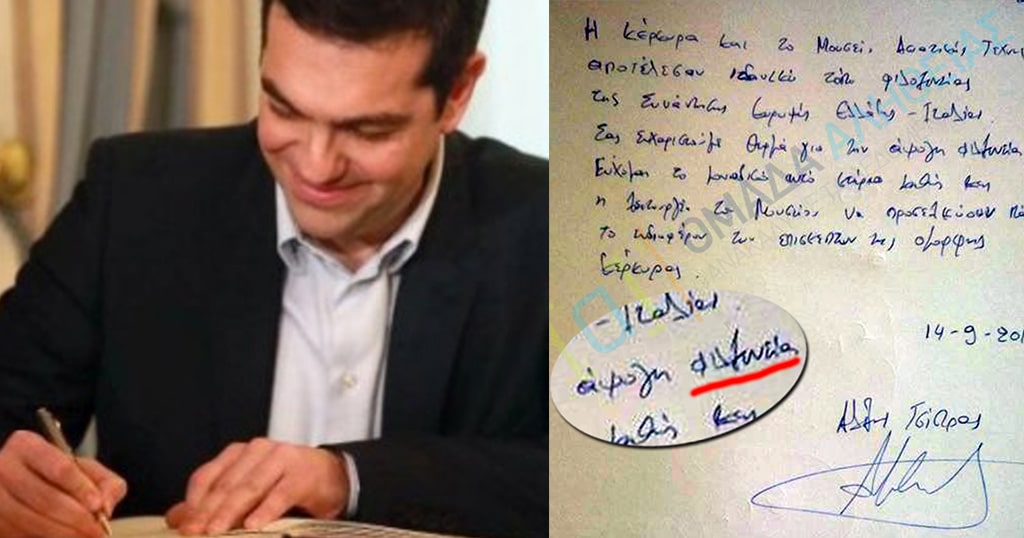 Η Κέρκυρα και το Μουσείο Ασιατικής Τέχνης
αποτέλεσαν ιδανικό τόπο φιλοξενίας
της Συνάντησης κορυφής Ελλάδας - Ιταλίας.
Σας ευχαριστούμε θερμά για την άψογη φιλοξενία
Εύχομαι το μοναδικό αυτό κτίριο καθώς και
η λειτουργία του Μουσείου να προσελκύσουν
το ενδιαφέρον των επισκεπτών της όμορφης
Κέρκυρας.
- Ιταλίας.
άψογη φιλοξενία
καθώς και
14-9-201
Αλέξης Τσίπρας
ΟΜΑΔΑ ΑΛΗΘΕΙΑΣ